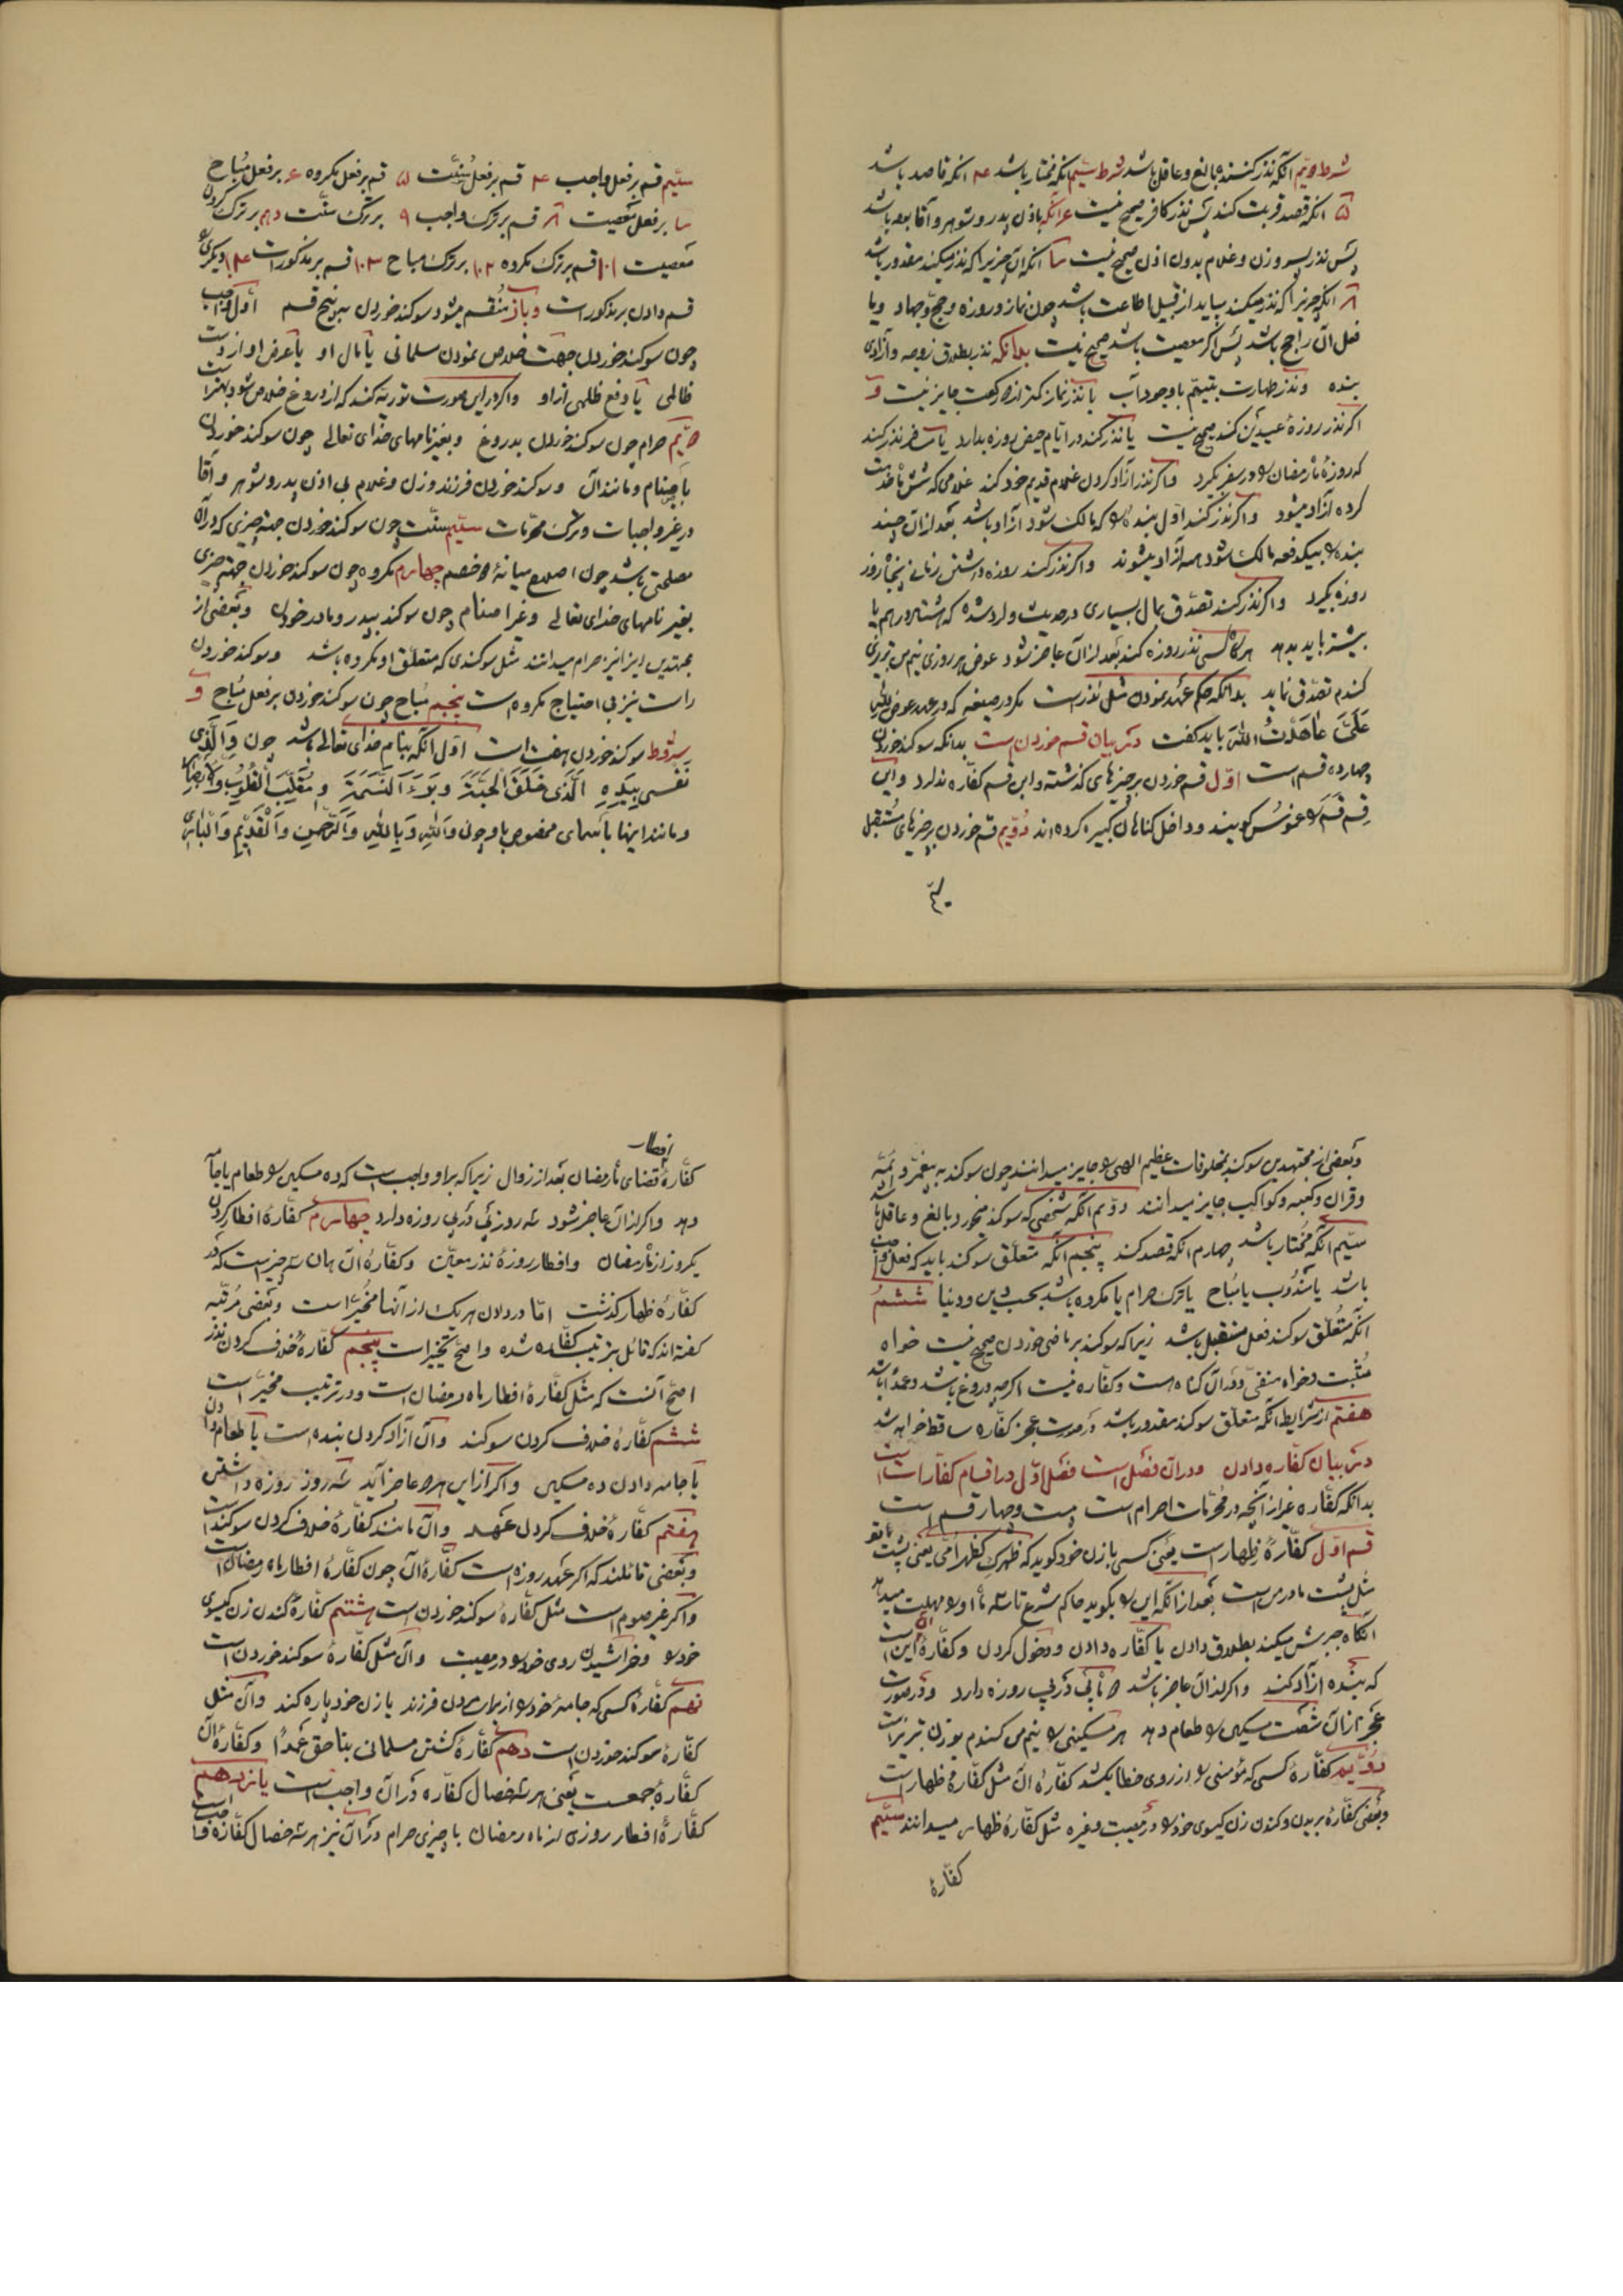 شرط دویم آنکه نذر کننده بالغ و عاقل باشد شرط سیّم آنکه مختار باشد ۴ آنکه قاصد باشد
۵ آنکه قصد قربت کند پس نذر کافر صحیح نیست ۶ آنکه باذن پدر و شوهر و آقا بوده باشد
پس نذر پسر و زن و غلام بدون اذن صحیح نیست ۷ آنکه آن چیزیرا که نذر میکند مقدور باشد
۸ آنکه چیزیرا که نذر میکند بباید از قبیل طاعت باشد چون نماز و روزه و حج و جهاد و یا
فعل آن راجح باشد پس اگر معصیت باشد صحیح نیست بدانکه نذر بطلاق زوجه و آزادی
بنده و نذر طهارت بتیمّم باوجود آب یا نذر نماز کمتر از دو رکعت جایز نیست و
اگر نذر روزهٔ عیدین کند صحیح نیست یا نذر کند در ایّام حیض روزه بدارد یا مسافر نذر کند
که روزهٔ ماه رمضان را در سفر بگیرد و اگر نذر آزاد کردن غلام قدیم خود کند غلامی که شش ماه خدمت
کرده آزاد میشود و اگر نذر کند اوّل بندهٔ را که مالک شود آزاد باشد بعد از آن چند
بنده را بیکدفعه مالک شود همه آزاد میشوند و اگر نذر کند روزه داشتن زمانی پنجاه روز
روزه بگیرد و اگر نذر کند تصدّق بمال بسیاری در حدیث وارد شده که هشتاد درهم یا
بیشتر باید بدهد هرگاه کسی نذر روزه کند بعد از آن عاجز شود عوض هر روزی نیم من تبریزی
گندم تصدّق نماید بدانکه حکم عهد نمودن مثل نذر است مگر در صیغه که در عهد عوض لله
علیّ عاهدت الله باید گفت در بیان قسم خوردن است بدانکه سوگند خوردن
چهارده قسم است اوّل قسم خوردن بر چیزهای گذشته و این قسم کفّاره ندارد و این
قسم قسم را غموس گویند و داخل گناهان کبیره کرده‌اند دویّم قسم خوردن بر چیزهای مستقبل
سیّم قسم بر فعل واجب ۴ قسم بر فعل سنّت ۵ قسم بر فعل مکروه ۶ بر فعل مباح
۷ بر فعل معصیت ۸ قسم بر ترک واجب ۹ بر ترک سنّت دهم بر ترک کردن
معصیت ۱۰۱ قسم بر ترک مکروه ۱۰۲ بر ترک مباح ۱۰۳ قسم بر مذکورات ۱۰۴ دیگری را
قسم دادن بر مذکورات و باز منقسم میشود سوگند خوردن بر پنج قسم اوّل واجب
چون سوگند خوردن جهت خلاص نمودن مسلمانی یا مال او یا عرض او از دست
ظالمی یا دفع ظلمی از او و اگر در این صورت توریه کند که از دروغ خلاص شود بهتر است
دویّم حرام چون سوگند خوردن بدروغ و بغیر نامهای خدای تعالی چون سوگند خوردن
باصنام و مانند آن و سوگند خوردن فرزند و زن و غلام بی اذن پدر و شوهر و آقا
در غیر واجبات و ترک محرّمات سیّم سنّت چون سوگند خوردن جهة چیزی که در آن
مصلحتی باشد چون اصلاح میانهٔ دو خصم چهارم مکروه چون سوگند خوردن جهة چیزی
بغیر نامهای خدای تعالی و غیر اصنام چون سوگند بپدر و مادر خوردن و بعضی از
مجتهدین این را نیز حرام میدانند مثل سوگندی که متعلّق او مکروه باشد و سوگند خوردن
راست نیز بی احتیاج مکروه است پنجم مباح چون سوگند خوردن بر فعل مباح و
شروط سوگند خوردن هفت است اوّل آنکه بنام خدای تعالی باشد چون والّذی
نفسی بیده الّذی خلق الحبّة و برء النّسمة و مقلّب القلوب والابصار
و مانند اینها باسمای مخصوص باو چون والله و بالله والرّحمن والقدیم والباری
و بعضی از مجتهدین سوگند بمخلوقات عظیم الهی را جایز میدانند چون سوگند به پیغمبر و ائمّه
و قران و کعبه و کواکب جایز میدانند دویّم آنکه شخصی که سوگند میخورد بالغ و عاقل باشد
سیّم آنکه مختار باشد چهارم آنکه قصد کند پنجم آنکه متعلّق سوگند باید که فعل واجب
باشد یا مندوب یا مباح یا ترک حرام یا مکروه باشد بحسب دین و دنیا ششم
آنکه متعلّق سوگند فعل مستقبل باشد زیرا که سوگند بر ماضی خوردن صحیح نیست خواه
مثبت و خواه منفی و در آن گناه هست و کفّاره نیست اگرچه دروغ باشد و عمدا باشد
هفتم از شرایط آنکه متعلّق سوگند مقدور باشد در صورت عجز کفّاره ساقط خواهد شد
در بیان کفّاره دادن و در آن فصل است فصل اوّل در اقسام کفّارات است
بدانکه کفّاره غیر از آنچه در محرّمات احرام است بیست و چهار قسم است
قسم اوّل کفّارهٔ ظهار است یعنی کسی بازن خود گوید که ظهرک کظهر امّی یعنی پشت تو
مثل پشت مادر من است بعد از آنکه این را بگوید حاکم شرع تا سه ماه او را مهلت میدهد
آنگاه جبرش میکند بطلاق دادن یا کفّاره دادن و دخول کردن و کفّارهٔ آن این است
که بنده آزاد کند و اگر از آن عاجز باشد دو ماه پی در پی روزه دارد و در صورت
عجز از آن شصت مسکین را طعام دهد هر مسکینی را نیم من گندم بوزن تبریز است
دویّم کفّارهٔ کسی که مؤمنی را از روی خطا بکشد کفّارهٔ آن مثل کفّارهٔ ظهار است
و بعضی کفّارهٔ بریدن و کندن زن گیسوی خود را در مصیبت و غیره مثل کفّارهٔ ظهار میدانند سیّم
کفّارهٔ
افطار
کفّارهٔ قضای ماه رمضان بعد از زوال زیرا که بر او واجب است که ده مسکین را طعام یا جامه
دهد و اگر از آن عاجز شود سه روز پی در پی روزه دارد چهارم کفّارهٔ افطار کردن
یکروز از ماه رمضان و افطار روزهٔ نذر معیّن و کفّارهٔ آن همان سه چیز است که در
کفّارهٔ ظهار گذشت امّا در دادن هریک از آنها مخیّر است و بعضی مرتّبه
گفته‌اند که قائل بترتیب کفّاره شده و اصحّ تخییر است پنجم کفّارهٔ خلاف کردن نذر
اصحّ آنست که مثل کفّارهٔ افطار ماه رمضان است و در ترتیب مخیّر است
ششم کفّارهٔ خلاف کردن سوگند و آن آزاد کردن بنده است یا طعام دادن
یا جامه دادن ده مسکین و اگر از این هر سه عاجز آید سه روز روزه داشتن
هفتم کفّارهٔ خلاف کردن عهد و آن مانند کفّارهٔ خلاف کردن سوگند است
و بعضی قائلند که اگر عهد روزه است کفّارهٔ آن چون کفّارهٔ افطار ماه رمضان است
و اگر غیر صوم است مثل کفّارهٔ سوگند خوردن است هشتم کفّارهٔ کندن زن گیسوی
خود را و خراشیدن روی خود را در مصیبت و آن مثل کفّارهٔ سوگند خوردن است
نهم کفّارهٔ کسی که جامهٔ خود را از برای مردن فرزند یا زن خود پاره کند و آن مثل
کفّارهٔ سوگند خوردن است دهم کفّارهٔ کشتن مسلمانی بناحق عمدًا و کفّارهٔ آن
کفّارهٔ جمعست یعنی هر سه خصال کفّاره در آن واجب است یازدهم
کفّارهٔ افطار روزی از ماه رمضان با چیزی حرام در آن نیز هر سه خصال کفّاره واجب است